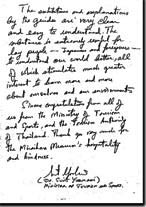 The exhibition and explanations
by the guides are very clear
and easy to understand. The
substance is extremely useful for
lay people — Japanese and foreigners —
to understand our world better, all
of which stimulates much greater
interest to learn more and more
about ourselves and our environment.
Sincere congratulation from all of
us from the Ministry of Tourism
and Sports, and the Tourism Authority
of Thailand. Thank you very much for
the Miraikan Museum's hospitality
and kindness.
Minister of Tourism and Sports.